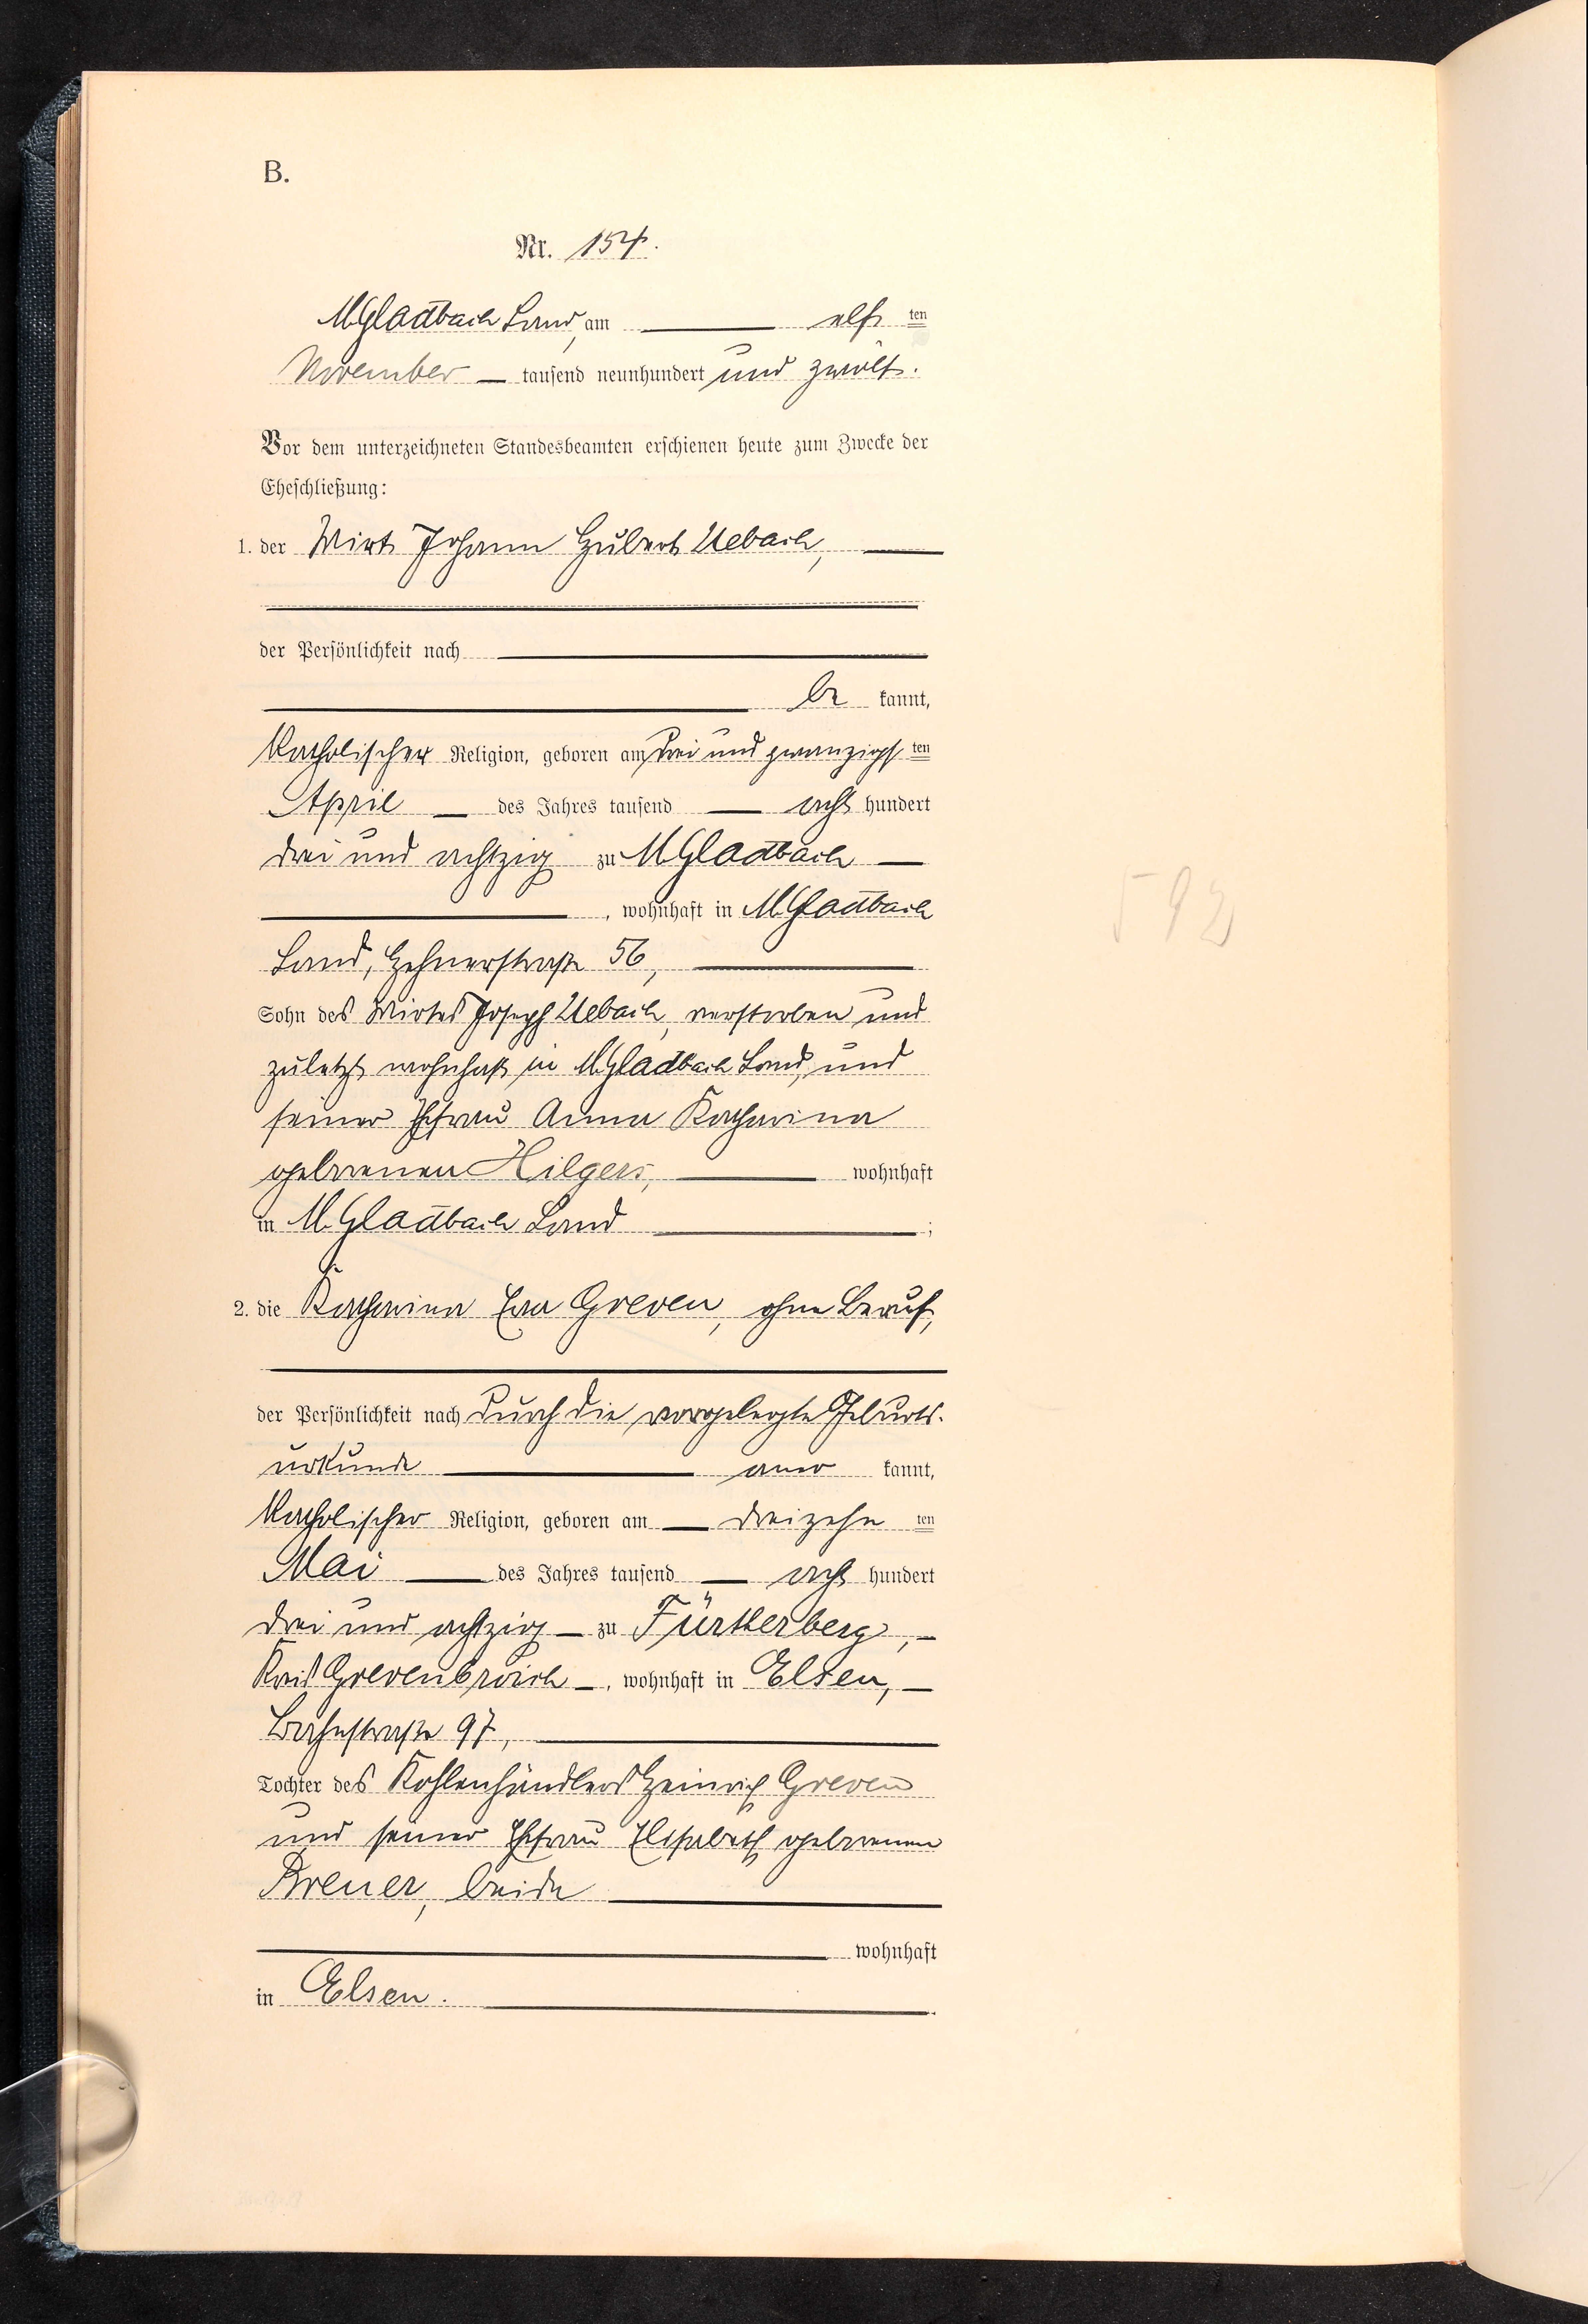 B.
Nr. 154.
M.Gladbach Land, am elf ten
November tausend neunhundert und zwölf.
Vor dem unterzeichneten Standesbeamten erschienen heute zum Zwecke der
Eheschließung:
1. der Wirt Johann Hubert Uebach,
der Persönlichkeit nach
be kannt,
katholischer Religion, geboren am drei und zwanzigsten
April des Jahres tausend acht hundert
drei und achtzig zu M.Gladbach
, wohnhaft in M.Gladbach
Land, Hehnerstraße 56,
Sohn des Wirtes Joseph Uebach, verstorben und
zuletzt wohnhaft in M.Gladbach Land, und
seiner Ehefrau Anna Katharina
geborenen Hilgers, wohnhaft
in M.Gladbach Land ;
2. die Katharina Eva Greven, ohne Beruf,
der Persönlichkeit nach durch die vorgelegte Geburts-
urkunde aner kannt,
katholischer Religion, geboren am dreizehn ten
Mai des Jahres tausend acht hundert
drei und achtzig zu Fürtherberg,
Kreis Grevenbroich , wohnhaft in Elsen,
Bahnstraße 97,
Tochter des Kohlenhändlers Heinrich Greven
und seiner Ehefrau Elisabeth geborenen
Brener, beide
wohnhaft
in Elsen.
592